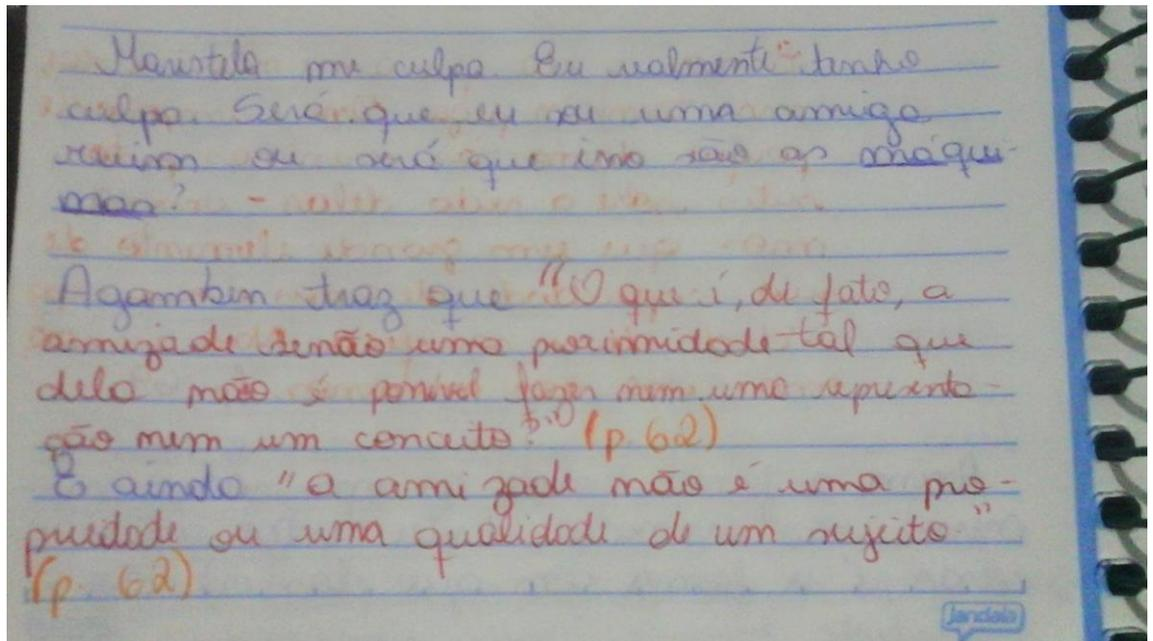 Maristela me culpa. Eu realmente tenho
culpa. Será que eu sou uma amiga
ruim ou será que isso são as máqui-
nas?
Agamben traz que "O que é, de fato, a
amizade senão uma proximidade tal que
dela não é possível fazer nem uma representa-
ção nem um conceito?" (p. 62)
E ainda "a amizade não é uma pro-
priedade ou uma qualidade de um sujeito"
(p. 62)
Jandaia